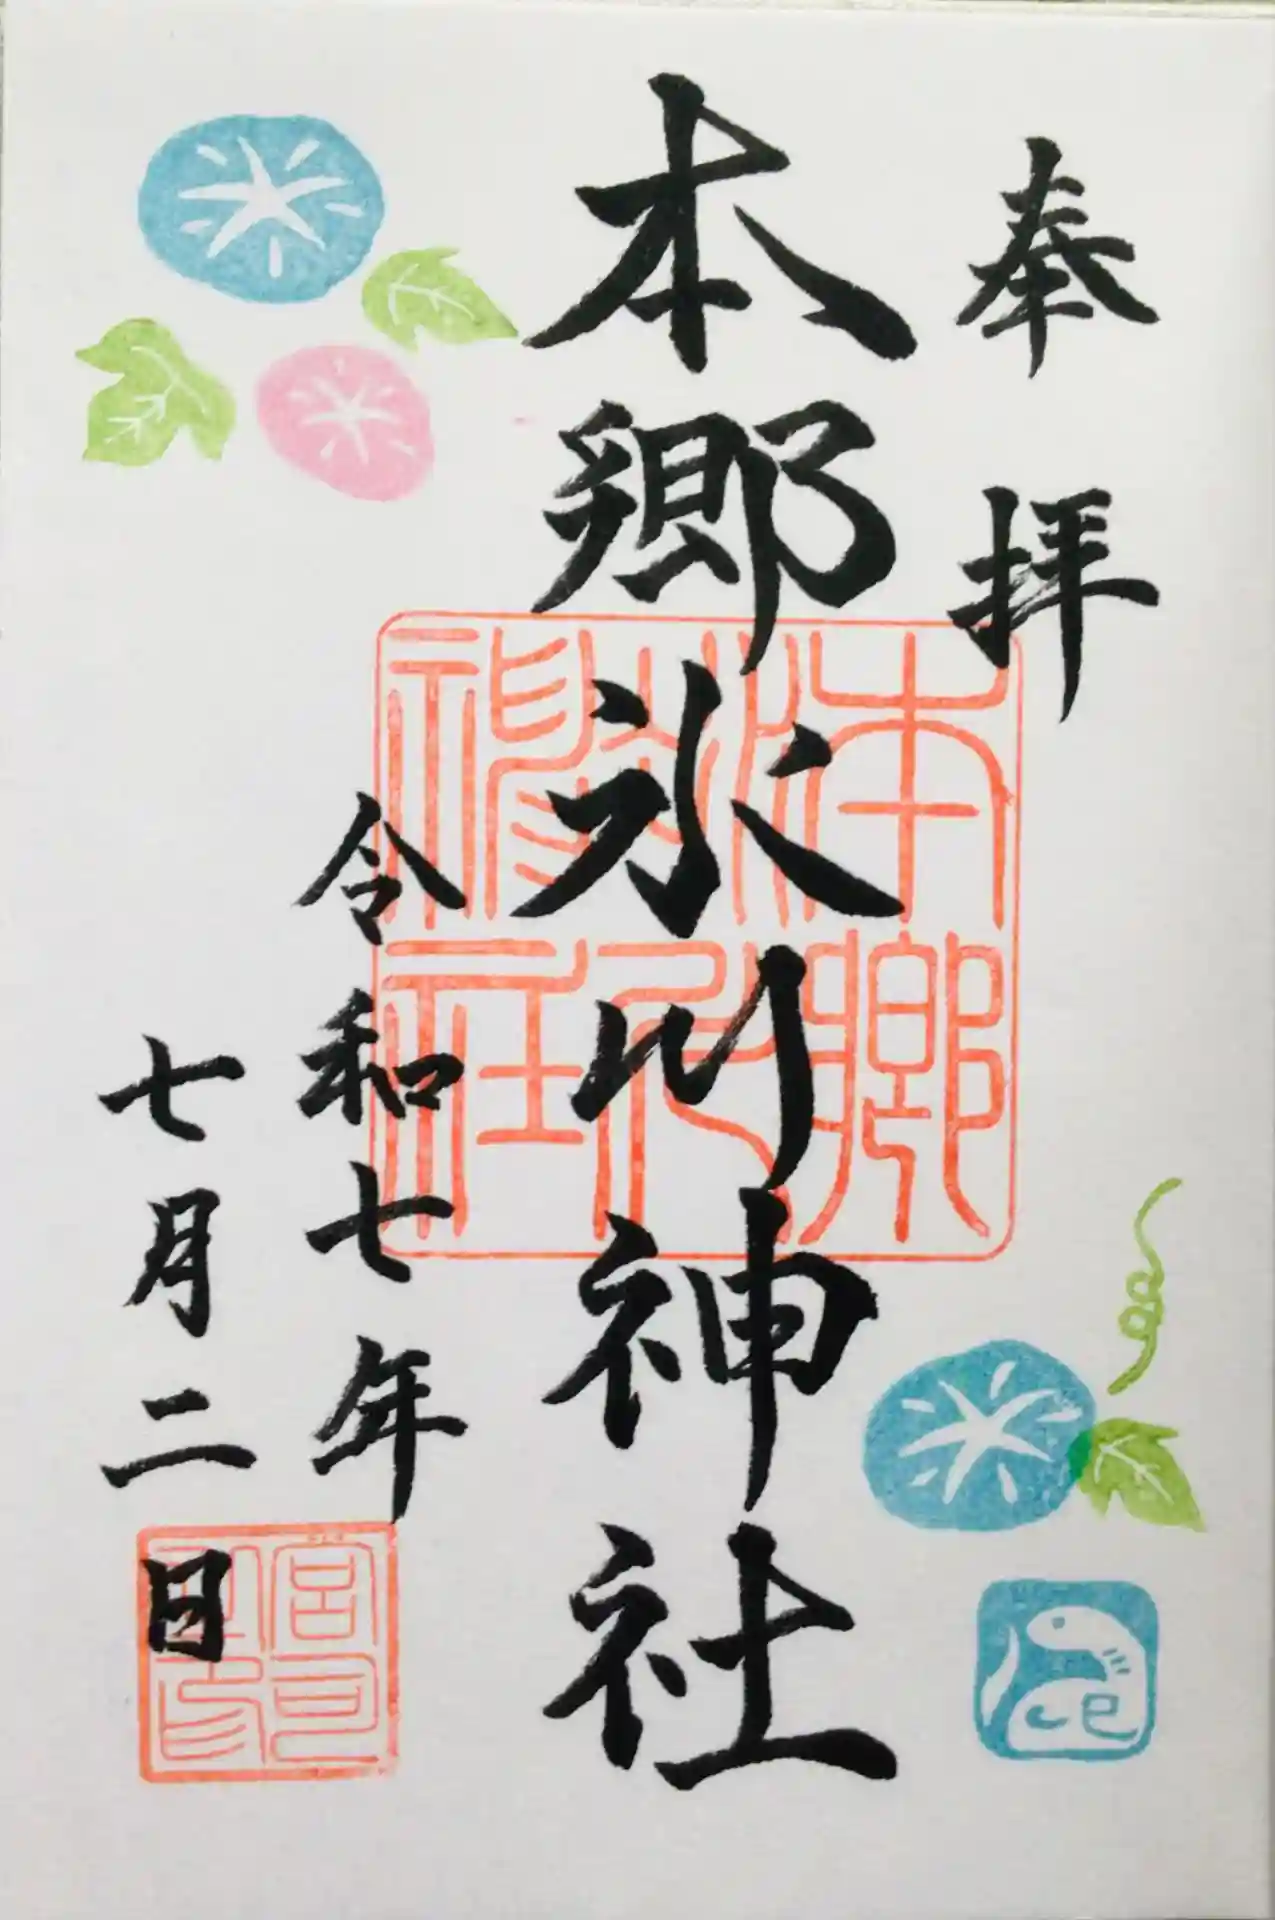 奉拝
本郷氷川神社
令和七年
七月二日
本郷
氷川
神社
宮司
之印
巳